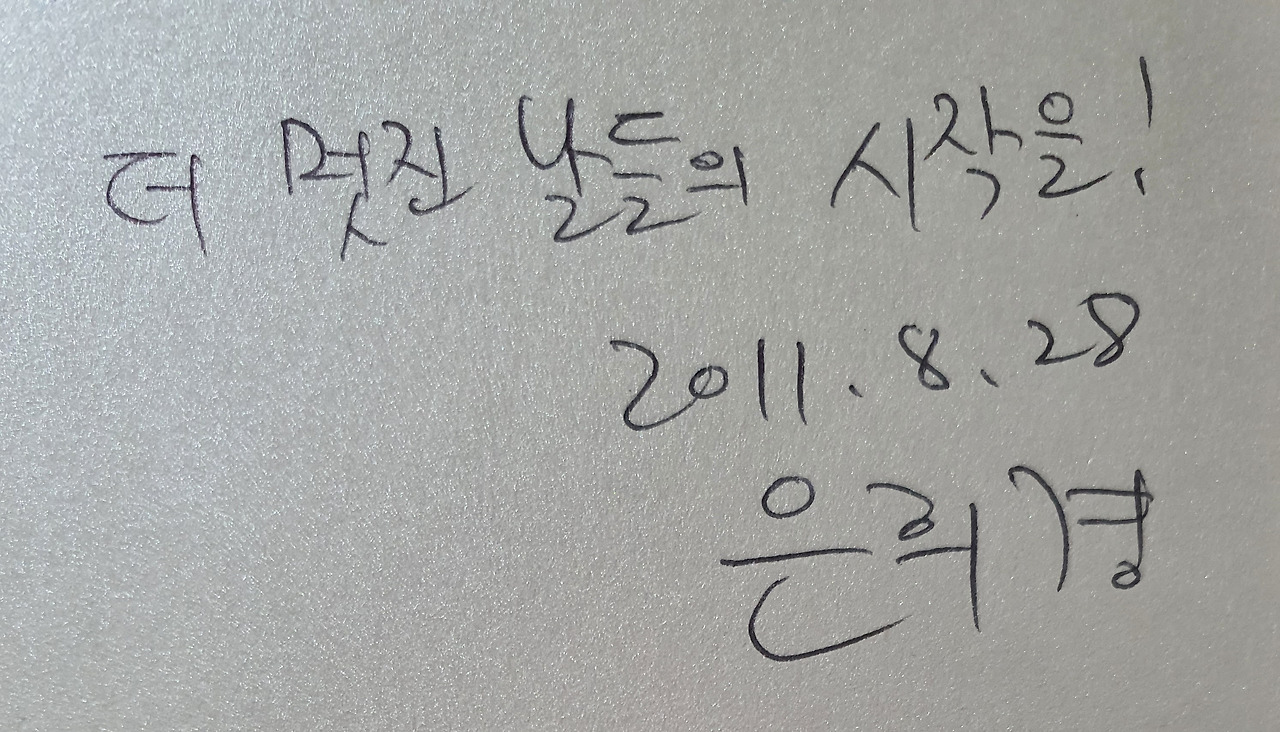 더 멋진 날들의 시작을!
2011. 8. 28
은희경